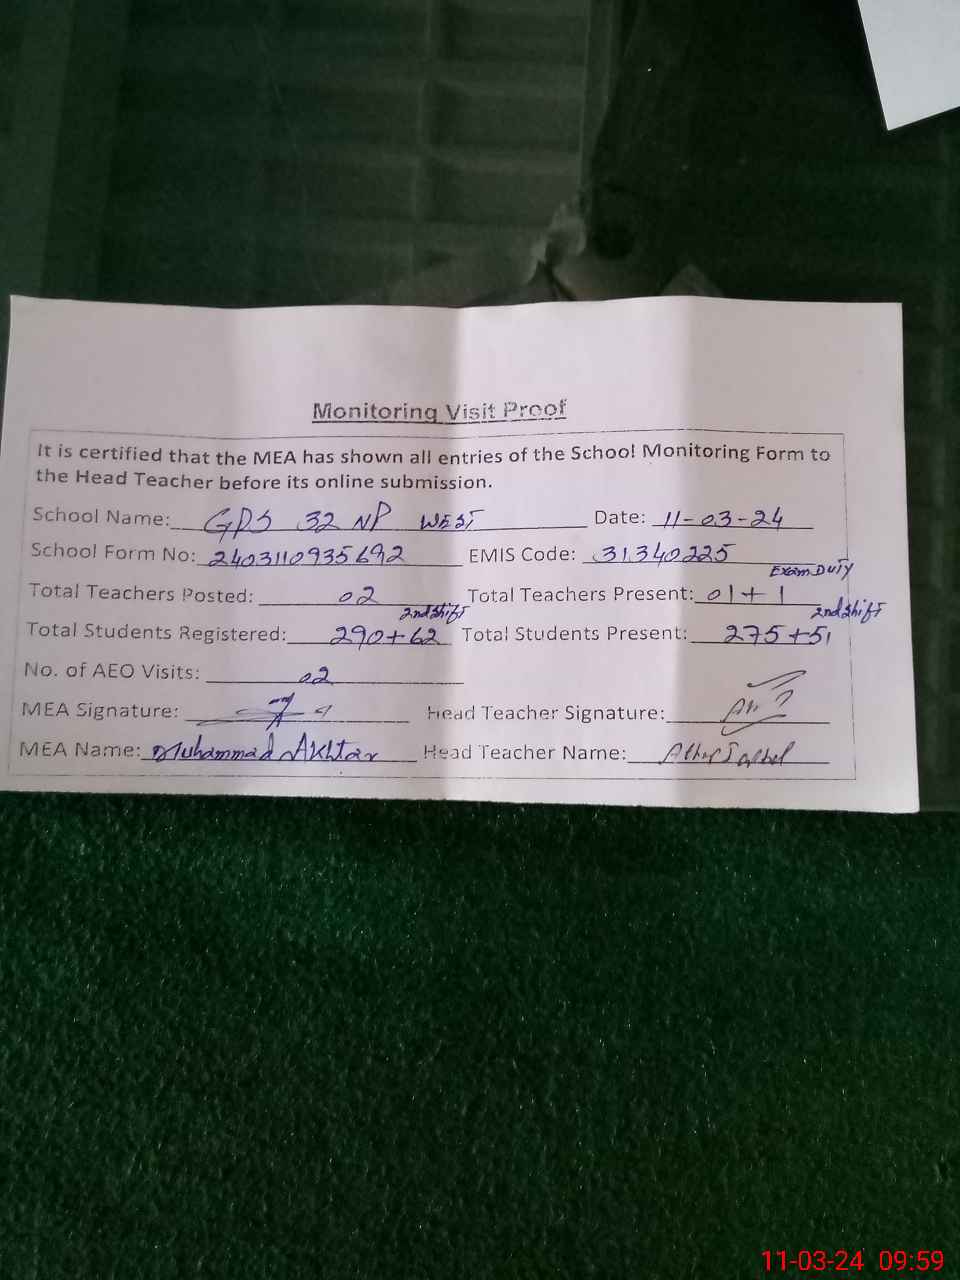 Monitoring Visit Proof
It is certified that the MEA has shown all entries of the School Monitoring Form to
the Head Teacher before its online submission.
School Name: GPS 32 NP WEST Date: 11-03-24
School Form No: 2403110935692 EMIS Code: 31340225
Exam Duty
Total Teachers Posted: 02 Total Teachers Present: 01+1
2nd Shift 2nd Shift
Total Students Registered: 290+62 Total Students Present: 275+51
No. of AEO Visits: 02
MEA Signature: Head Teacher Signature:
MEA Name: Muhammad Akhtar Head Teacher Name:
11-03-24 09:59